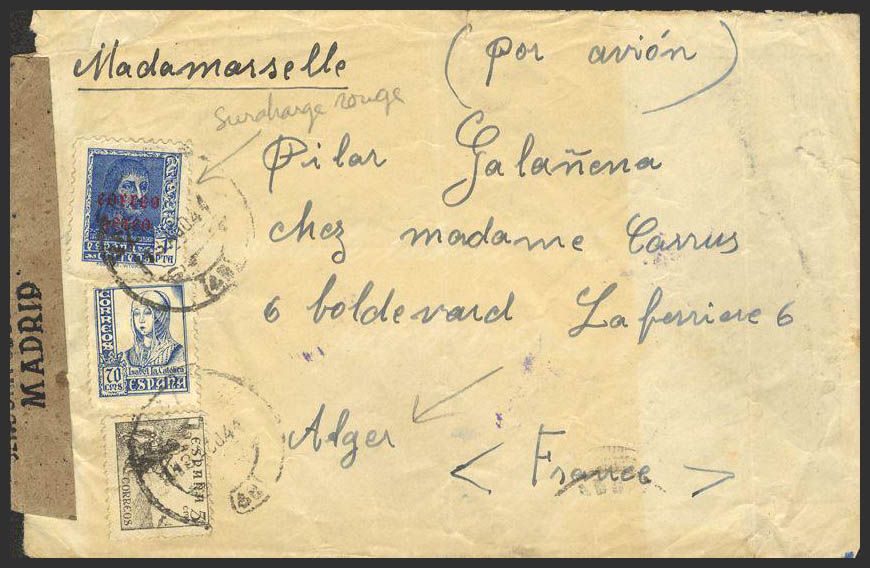 Madamasselle
(por avión)
surcharge rouge
Pilar Galañena
chez madame Carrus
6 boldevard Laferriere 6
Alger
<France>
correo
aereo
ESPAÑA
PTA
CORREOS
70
CTMS
Isabel la Católica
ESPAÑA
ESPAÑA
5
CTS
CORREOS
MADRID